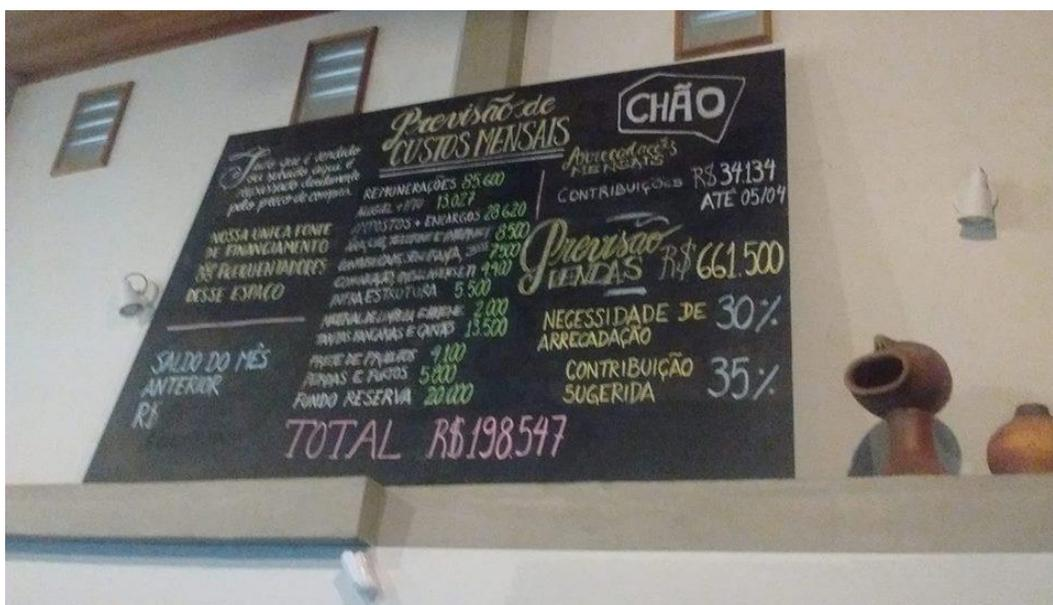 Tudo que é vendido
ou servido aqui é
repassado diretamente
pelo preço de compra.
NOSSA UNICA FONTE
DE FINANCIAMENTO
SÃO FREQUENTADORES
DESSE ESPAÇO
SALDO DO MÊS
ANTERIOR
R$
Previsão de
CUSTOS MENSAIS
REMUNERAÇÕES 85.600
ALUGUEL + IPTU 13.027
IMPOSTOS + ENCARGOS 28.620
TELEFONE E INTERNET 8.500
7.500
4.900
INFRAESTRUTURA 5.500
MATERIAL DE LIMPEZA E HIGIENE 2.000
TAXAS BANCARIAS E CARTÃO 13.500
FRETE DE PRODUTOS 4.100
PERDAS E FURTOS 5.800
FUNDO RESERVA 20.000
TOTAL R$198.547
CHÃO
Arrecadações
MENSAIS
CONTRIBUIÇÕES R$34.134
ATÉ 05/04
Previsão
VENDAS R$661.500
NECESSIDADE DE 30%
ARRECADAÇÃO
CONTRIBUIÇÃO 35%
SUGERIDA